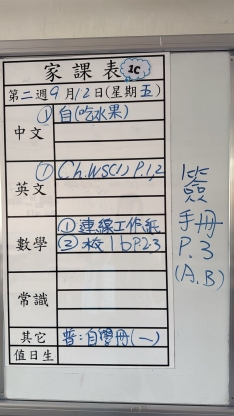 家課表 1C
第二週9月12日(星期五)
中文 ① 自(吃水果)
英文 ① Ch.WS(1) P.1,2
數學 ① 連線工作紙
② 校1b P.2-3
常識
其它 普:自學冊(一)
值日生
簽
手冊
P.3
(A.B)